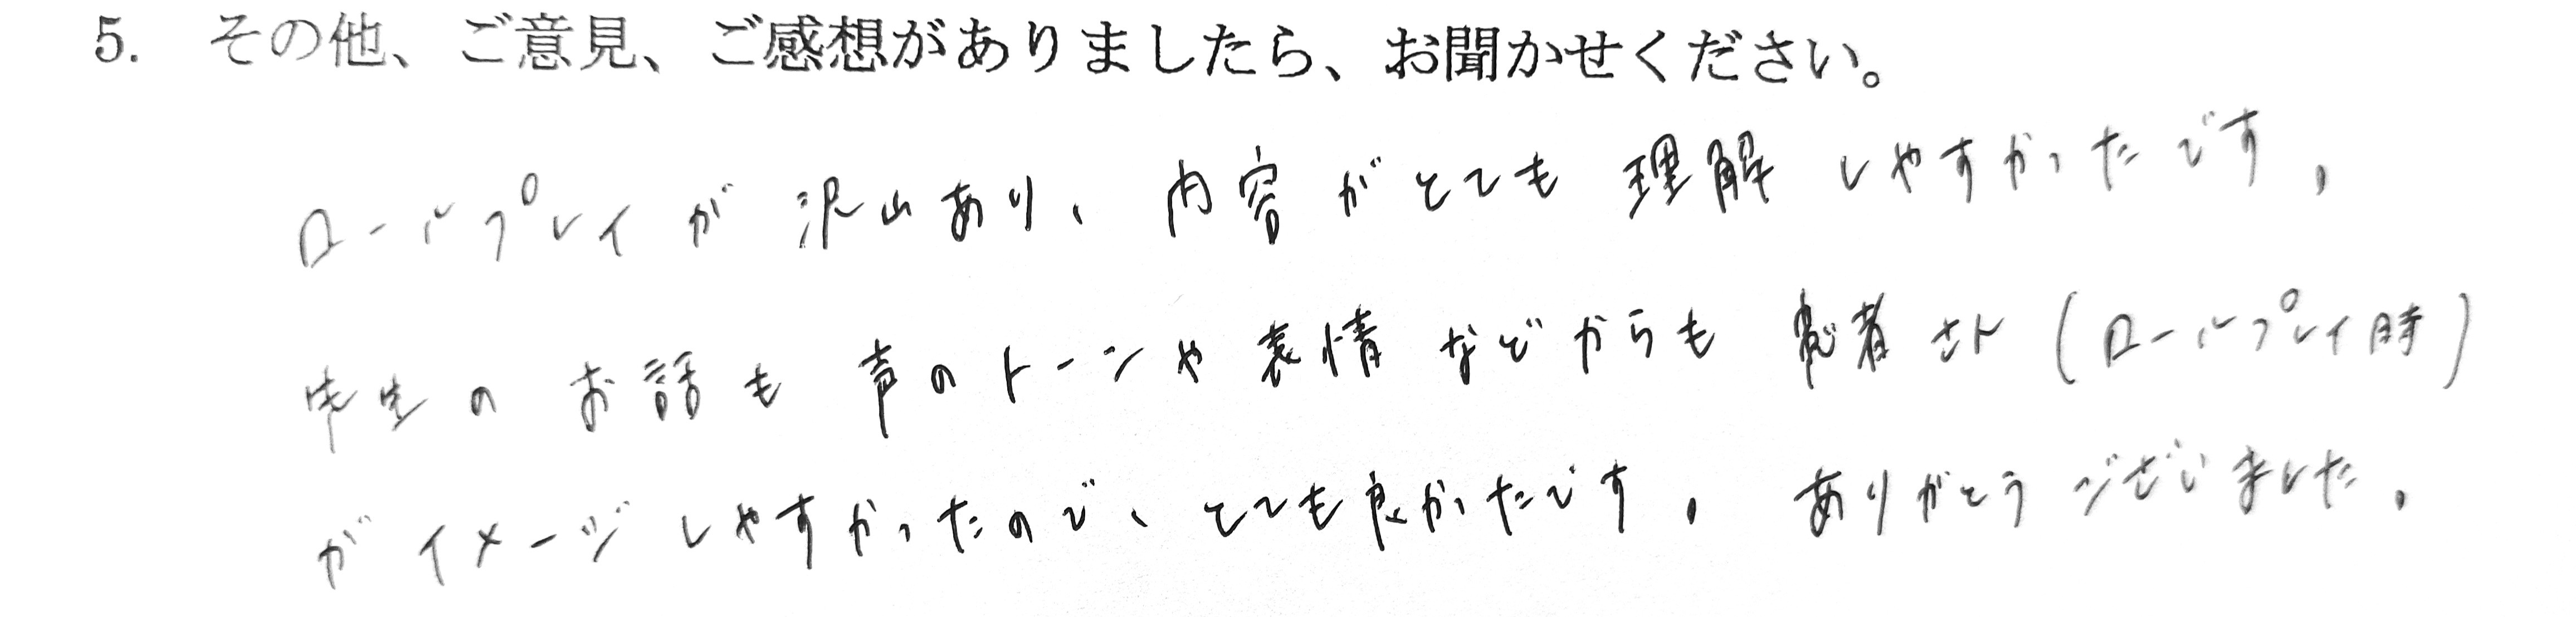 5. その他、ご意見、ご感想がありましたら、お聞かせください。
ロールプレイが沢山あり、内容がとても理解しやすかったです。
先生のお話も声のトーンや表情などからも患者さん(ロールプレイ時)
がイメージしやすかったので、とても良かったです。ありがとうございました。